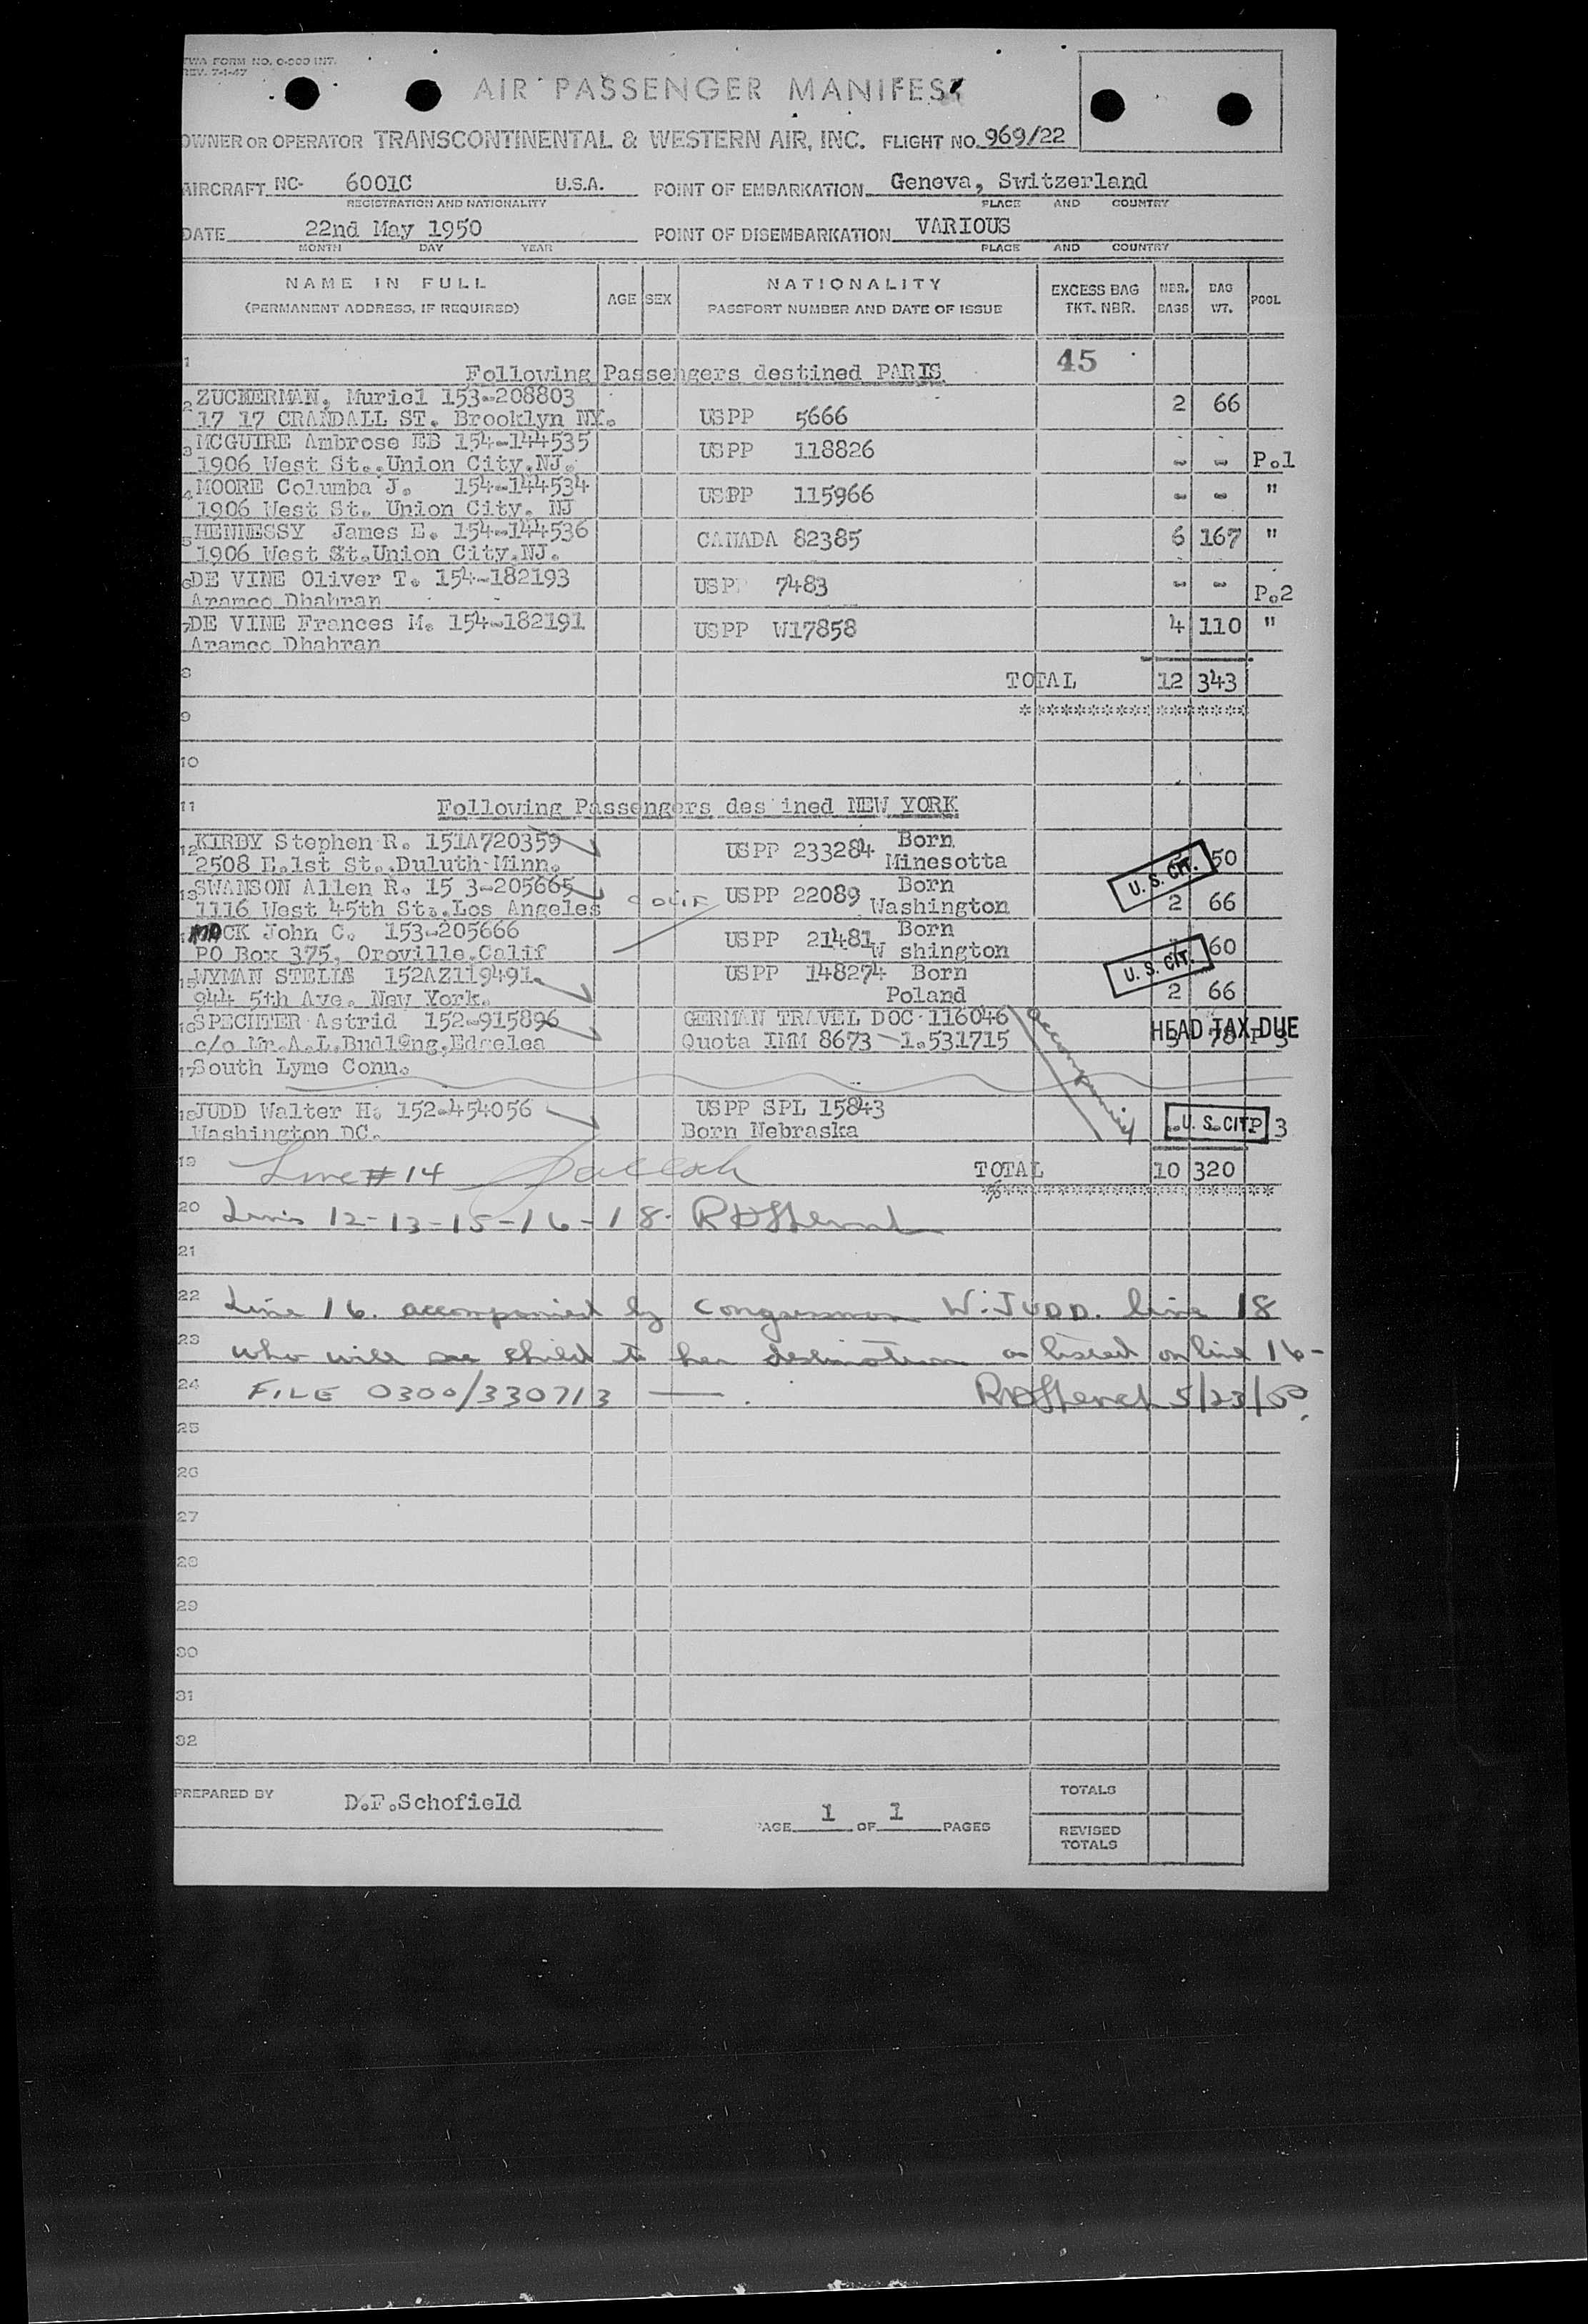 TWA FORM NO. 0-900 INT.
REV. 7-1-47
AIR PASSENGER MANIFEST
OWNER OR OPERATOR TRANSCONTINENTAL & WESTERN AIR, INC. FLIGHT NO. 969/22
AIRCRAFT NC- 6001C U.S.A. POINT OF EMBARKATION Geneva, Switzerland
REGISTRATION AND NATIONALITY PLACE AND COUNTRY
DATE 22nd May 1950 POINT OF DISEMBARKATION VARIOUS
MONTH DAY YEAR PLACE AND COUNTRY
NAME IN FULL AGE SEX NATIONALITY EXCESS BAG NBR. BAG POOL
(PERMANENT ADDRESS, IF REQUIRED) PASSPORT NUMBER AND DATE OF ISSUE TKT. NBR. BAGS WT.
1 Following Passengers destined PARIS 45
2 ZUCKERMAN, Muriel 153-208803 USPP 5666 2 66
17 17 CRANDALL ST. Brooklyn NY.
3 MCGUIRE Ambrose EB 154-144535 USPP 118826 - - P.1
1906 West St..Union City.NJ.
4 MOORE Columba J. 154-144534 USPP 115966 - - "
1906 West St. Union City. NJ
5 HENNESSY James E. 154-144536 CANADA 82385 6 167 "
1906 West St.Union City.NJ.
6 DE VINE Oliver T. 154-182193 USPP 7483 - - P.2
Aramco Dhahran
7 DE VINE Frances M. 154-182191 USPP W17858 4 110 "
Aramco Dhahran
8 TOTAL 12 343
9 ******************
10
11 Following Passengers des ined NEW YORK
12 KIRBY Stephen R. 151A720359 USPP 233284 Born 50
2508 E.1st St..Duluth Minn. Minesotta U. S. CIT.
13 SWANSON Allen R. 15 3-205665 USPP 22089 Born 2 66
1116 West 45th St..Los Angeles Calif Washington
MOCK John C. 153-205666 USPP 21481 Born 60
PO Box 375, Oroville.Calif W shington U. S. CIT.
15 WYMAN STELLS 152AZ119491. USPP 148274 Born 2 66
944 5th Ave. New York. Poland
16 SPECHTER Astrid 152-915896 GERMAN TRAVEL DOC 116046 HEAD TAX DUE
c/o Mr.A.L.Budlong,Edgelea Quota IMM 8673 1.531715 78 P 3
17 South Lyme Conn. accompanied
18 JUDD Walter H. 152-454056 USPP SPL 15843 U. S. CIT. P 3
Washington DC. Born Nebraska
19 Line # 14 TOTAL 10 320
20 Lines 12-13-15-16-18
21
22 Line 16. accompanied by Congressman W. JUDD. line 18
23 who will see child to her destination as listed on line 16-
24 FILE 0300/330713 5/23/50
25
26
27
28
29
30
31
32
PREPARED BY D.F.Schofield PAGE 1 OF 1 PAGES TOTALS
REVISED TOTALS